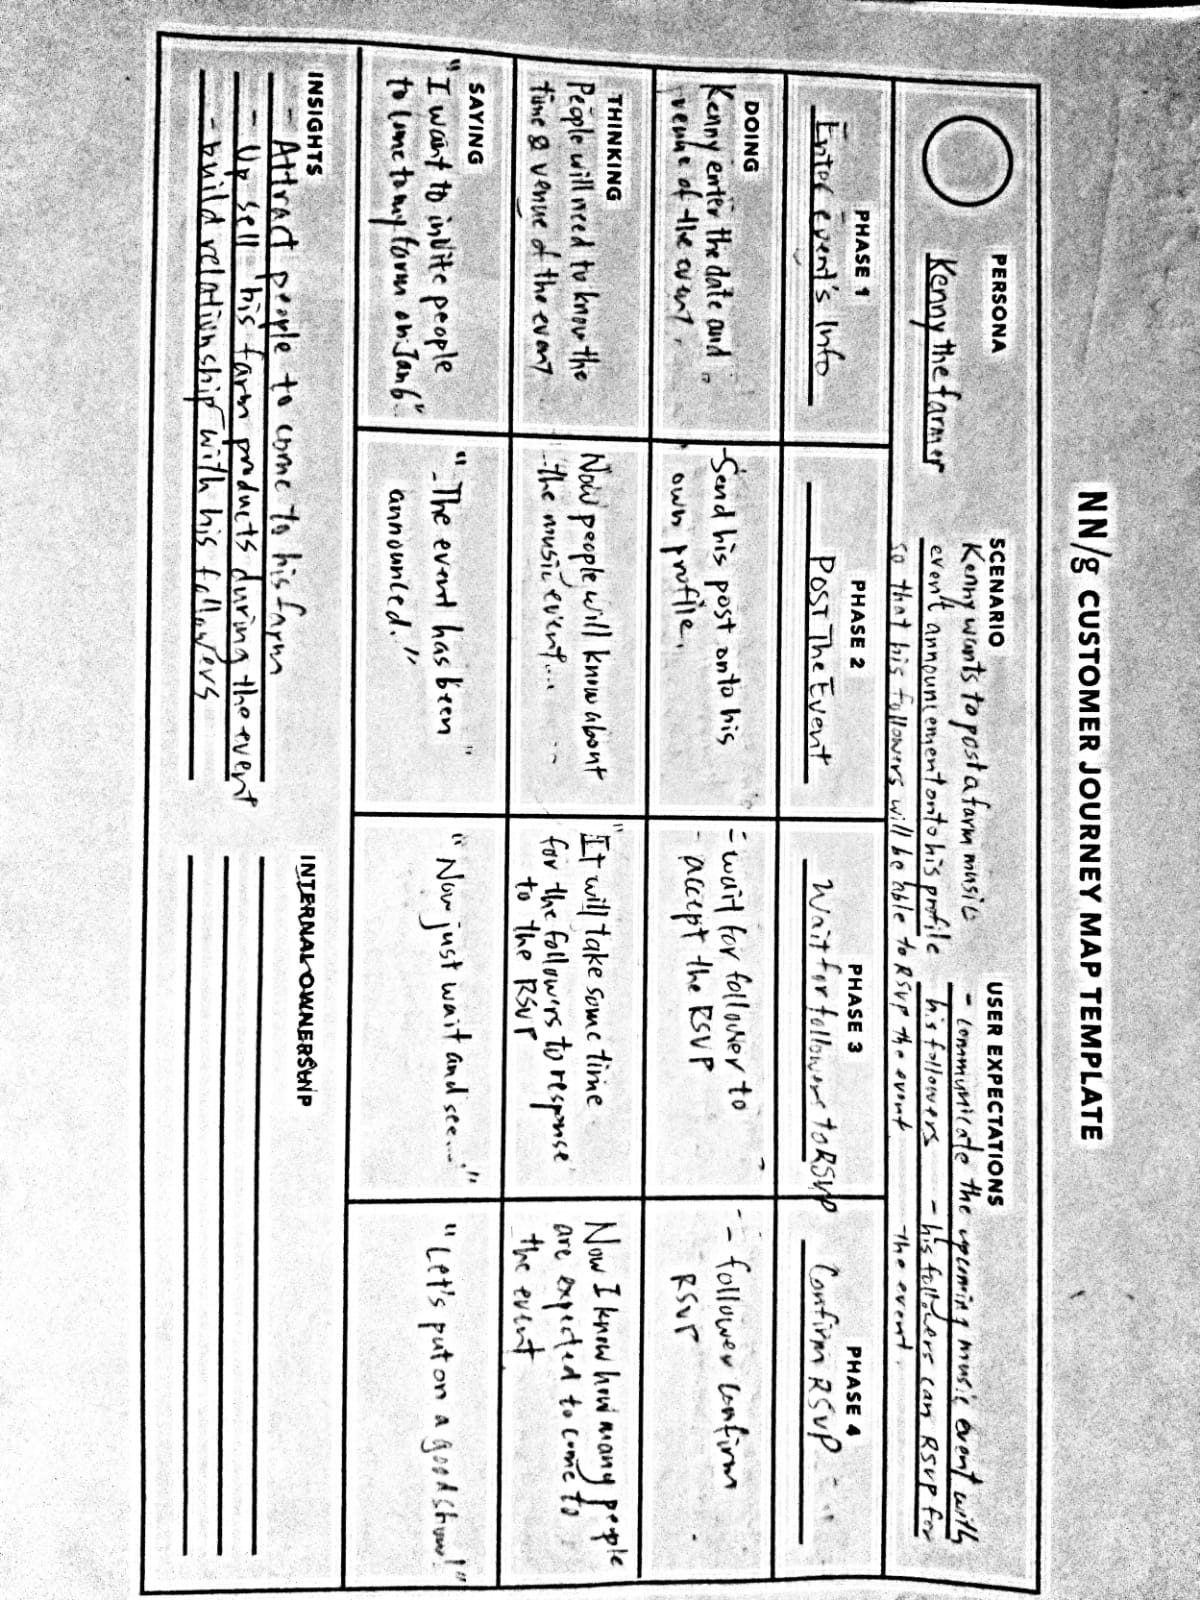 NN/g CUSTOMER JOURNEY MAP TEMPLATE
PERSONA
Kenny the farmer
SCENARIO
Kenny wants to post a farm music
event announcement onto his profile
so that his followers will be able to RSVP the event.
USER EXPECTATIONS
- communicate the upcoming music event with
his followers - his followers can RSVP for
the event.
PHASE 1
Enter event's Info
PHASE 2
POST The Event
PHASE 3
Wait for followers to RSVP
PHASE 4
Confirm RSVP
DOING
Kenny enter the date and
venue of the event.
- Send his post onto his
own profile.
- wait for follower to
- accept the RSVP
- follower confirm
RSVP
THINKING
People will need to know the
time & venue of the event
Now people will know about
the music event...
"It will take some time
for the followers to response
to the RSVP
Now I know how many people
are expected to come to
the event
SAYING
"I want to invite people
to come to my farm on Jan 6"
"The event has been"
announced."
"Now just wait and see...."
"Let's put on a good show!"
INSIGHTS
- Attract people to come to his farm
- Up sell his farm products during the event
- build relationship with his followers
INTERNAL OWNERSHIP